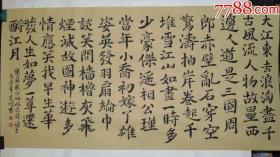 大江東去浪淘盡千
古風流人物故壘西
邊人道是三國周
郎赤壁亂石穿空
驚濤拍岸卷起千
堆雪江山如畫時多
少豪傑遥想公瑾
當年小喬初嫁了雄
姿英發羽扇綸巾
談笑間檣櫓灰飛
煙滅故國神遊多
情應笑我早生華
髮人生如夢一尊還
酹江月
7788.com